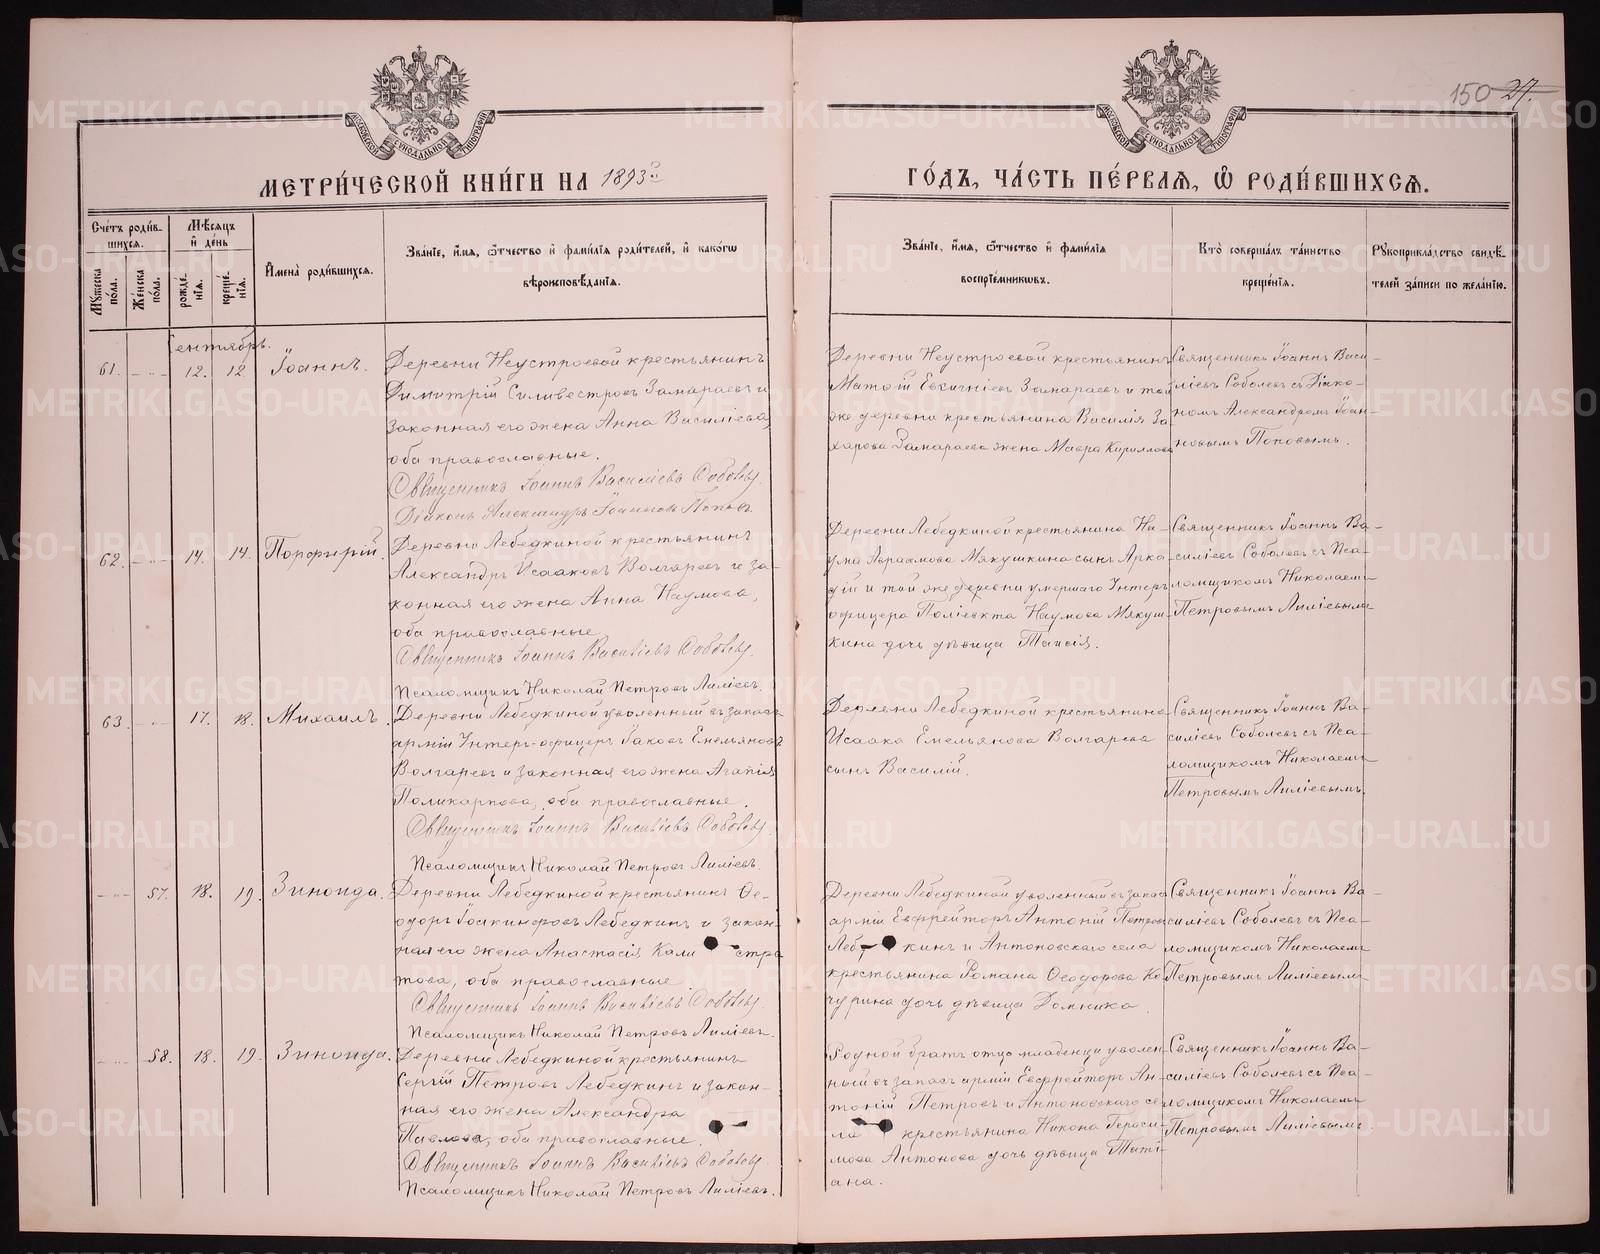 150 27.
МОСКОВСКОЙ СѴНОДАЛЬНОЙ ТИПОГРАФІИ
МОСКОВСКОЙ СѴНОДАЛЬНОЙ ТИПОГРАФІИ
МЕТРИ́ЧЕСКОЙ КНИ́ГИ НА 1893й
ГО́ДЪ, ЧА́СТЬ ПЕ́РВАЯ, Ѽ РОДИ́ВШИХСЯ.
Сче́тъ роди́в-
шихся.
Мѣ́сяцъ
и де́нь
Мꙋ́жеска
по́ла.
Же́нска
по́ла.
рожде́-
нїя.
креще́-
нїя.
И҆мена̀ роди́вшихся.
Зва́нїе, и҆́мя, ѻ҆́тчество и҆ фами́лїя роди́телей, и҆ како́гѡ
вѣроисповѣ́данїя.
Зва́нїе, и҆́мя, ѻ҆́тчество и҆ фами́лїя
воспрїе́мникѡвъ.
Кто̀ соверша́лъ та́инство
креще́нїя.
Рꙋкоприкла́дство свидѣ́-
телей за́писи по жела́нїю.
Сентябрь.
61. - " - 12. 12 Іоаннъ.
Деревни Неустроевой крестьянинъ
Димитрій Силивестровъ Замараевъ и
законная его жена Анна Василіева,
оба православные.
Священникъ Іоаннъ Василіевъ Соболевъ.
Діаконъ Александръ Іоанновъ Поповъ.
Деревни Неустроевой крестьянинъ
Матѳій Евгеніевъ Замараевъ и той
же деревни крестьянина Василія За-
харова Замараева жена Мавра Кириллова
Священникъ Іоаннъ Васи-
ліевъ Соболевъ съ Діако-
номъ Александромъ Іоан-
новымъ Поповымъ.
62. - " - 14. 14. Порфирій.
Деревни Лебедкиной крестьянинъ
Александръ Исааковъ Волгаревъ и за-
конная его жена Анна Наумова,
оба православные
Священникъ Іоаннъ Василіевъ Соболевъ.
Псаломщикъ Николай Петровъ Лиліевъ.
Деревни Лебедкиной крестьянина На-
ума Авраамова Мякушкина сынъ Арка-
дій и той же деревни умершаго Унтеръ
офицера Поліевкта Наумова Мякуш-
кина дочь дѣвица Таисія.
Священникъ Іоаннъ Ва-
силіевъ Соболевъ съ Пса-
ломщикомъ Николаемъ
Петровымъ Лиліевымъ
63. - " - 17. 18. Михаилъ.
Деревни Лебедкиной уволенный въ запасъ
арміи Унтеръ-офицеръ Іаковъ Емельяновъ
Волгаревъ и законная его жена Агапія
Поликарпова, оба православные.
Священникъ Іоаннъ Василіевъ Соболевъ.
Псаломщикъ Николай Петровъ Лиліевъ.
Деревни Лебедкиной крестьянина
Исаака Емельянова Волгарева
сынъ Василій.
Священникъ Іоаннъ Ва-
силіевъ Соболевъ съ Пса-
ломщикомъ Николаемъ
Петровымъ Лиліевымъ.
- " - 57. 18. 19. Зинаида.
Деревни Лебедкиной крестьянинъ Ѳе-
одоръ Іоакинфовъ Лебедкинъ и закон-
ная его жена Анастасія Кали стра
това, оба православные
Священникъ Іоаннъ Василіевъ Соболевъ.
Псаломщикъ Николай Петровъ Лиліевъ.
Деревни Лебедкиной уволенный въ запасъ
арміи Ефрейторъ Антоній Петровъ
Лебед кинъ и Антоновскаго села
крестьянина Романа Ѳеодорова Ко
чурина дочь дѣвица Домника.
Священникъ Іоаннъ Ва-
силіевъ Соболевъ съ Пса-
ломщикомъ Николаемъ
Петровымъ Лиліевымъ
- " - 58. 18. 19. Зинаида.
Деревни Лебедкиной крестьянинъ
Сергій Петровъ Лебедкинъ и закон-
ная его жена Александра
Павлова, оба православные.
Священникъ Іоаннъ Василіевъ Соболевъ.
Псаломщикъ Николай Петровъ Лиліевъ.
Родной братъ отца младенца уволен-
ный въ запасъ арміи Ефрейторъ Ан-
тоній Петровъ и Антоновскаго се-
ла крестьянина Никона Гераси-
мова Антонова дочь дѣвица Тати-
ана.
Священникъ Іоаннъ Ва-
силіевъ Соболевъ съ Пса-
ломщикомъ Николаемъ
Петровымъ Лиліевымъ
METRIKI.GASO-URAL.RU